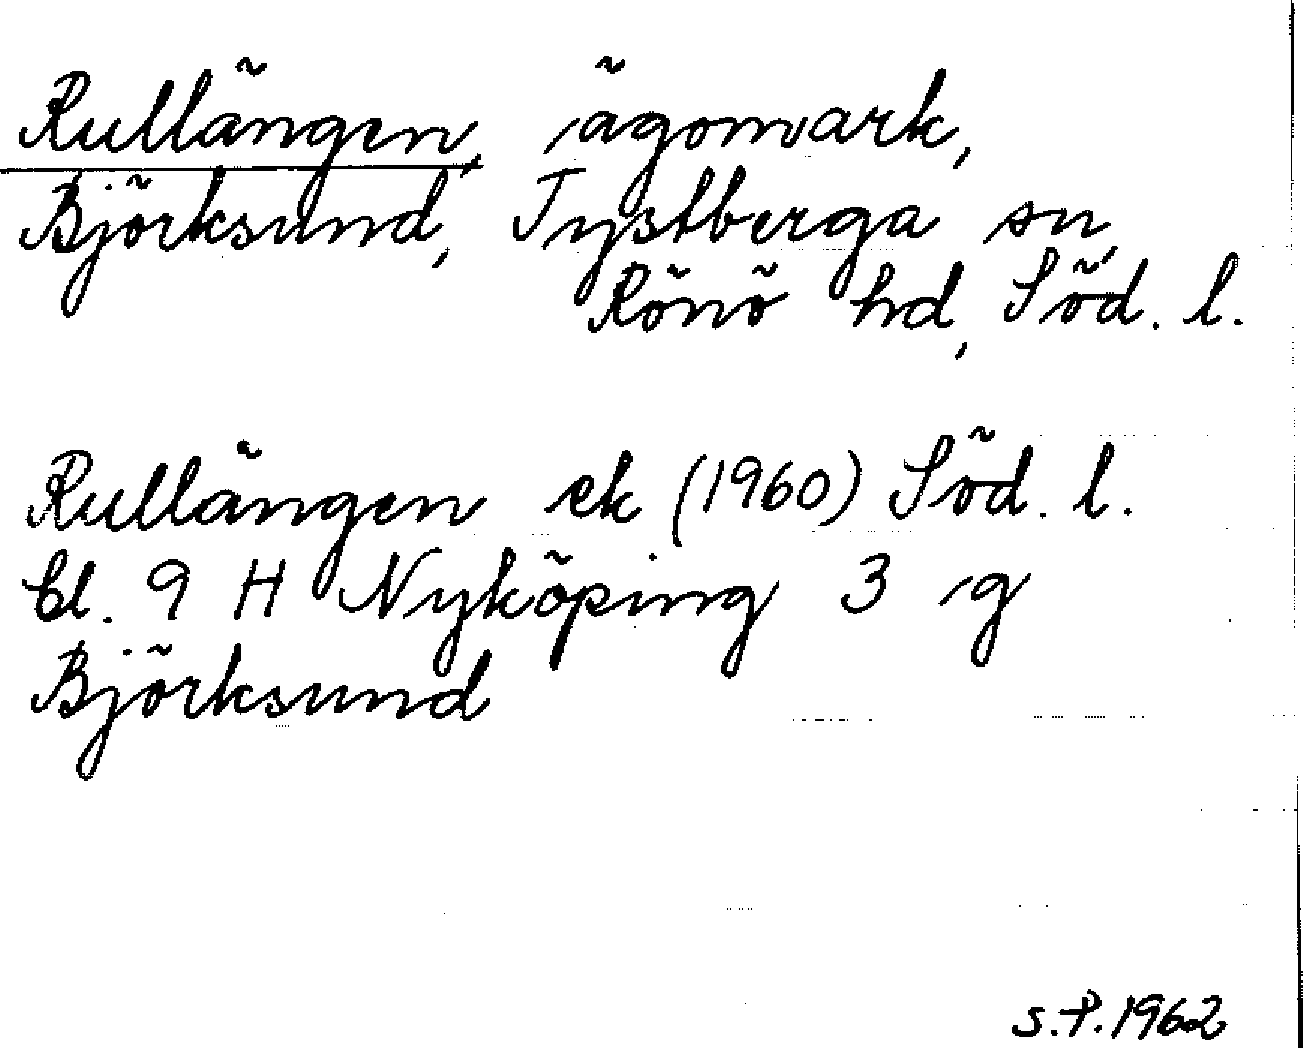 Rullängen, ägomark,
Björksund, Tystberga sn,
Rönö hd, Söd. l.
Rullängen ek (1960) Söd. l.
bl. 9 H Nyköping 3 g
Björksund
S.P. 1962